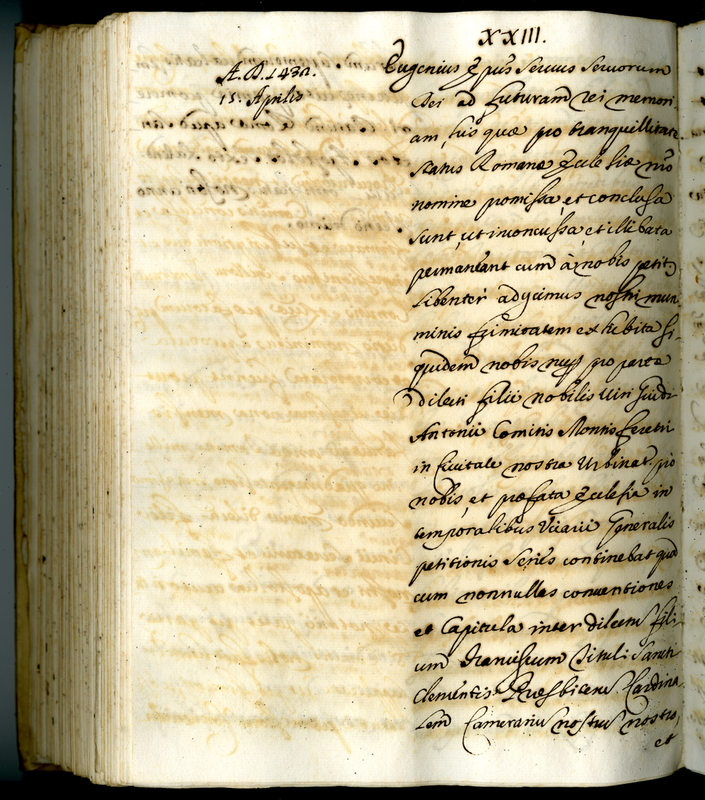 XXIII.
A.D. 1432.
15. Aprilis
Eugenius Epus Seruus Seruorum
Dei ad futuram rei memori
am, his quæ pro tranquillitate
status Romanæ Ecclesiæ nro
nomine promissa, et conclusa
sunt, ut inconcussa, et illibata
permaneant cum à nobis petit
libenter adycimus nostri mun
minis firmitatem exhibita si
quidem nobis nup pro parte
dilecti filii nobilis Viri Guidi
Antonii Comitis Montis feretri
in Ciuitate nostra Urbinat. pro
nobis, et præfata Ecclesia in
temporalibus Vicarii Generalis
petitionis series continebat quod
cum nonnulles conuentiones
et Capitula inter dilectum fili
um franciscum tituli Sancti
Clementis Præsbiterum Cardina
lem Camerariu nostru nostro,
et